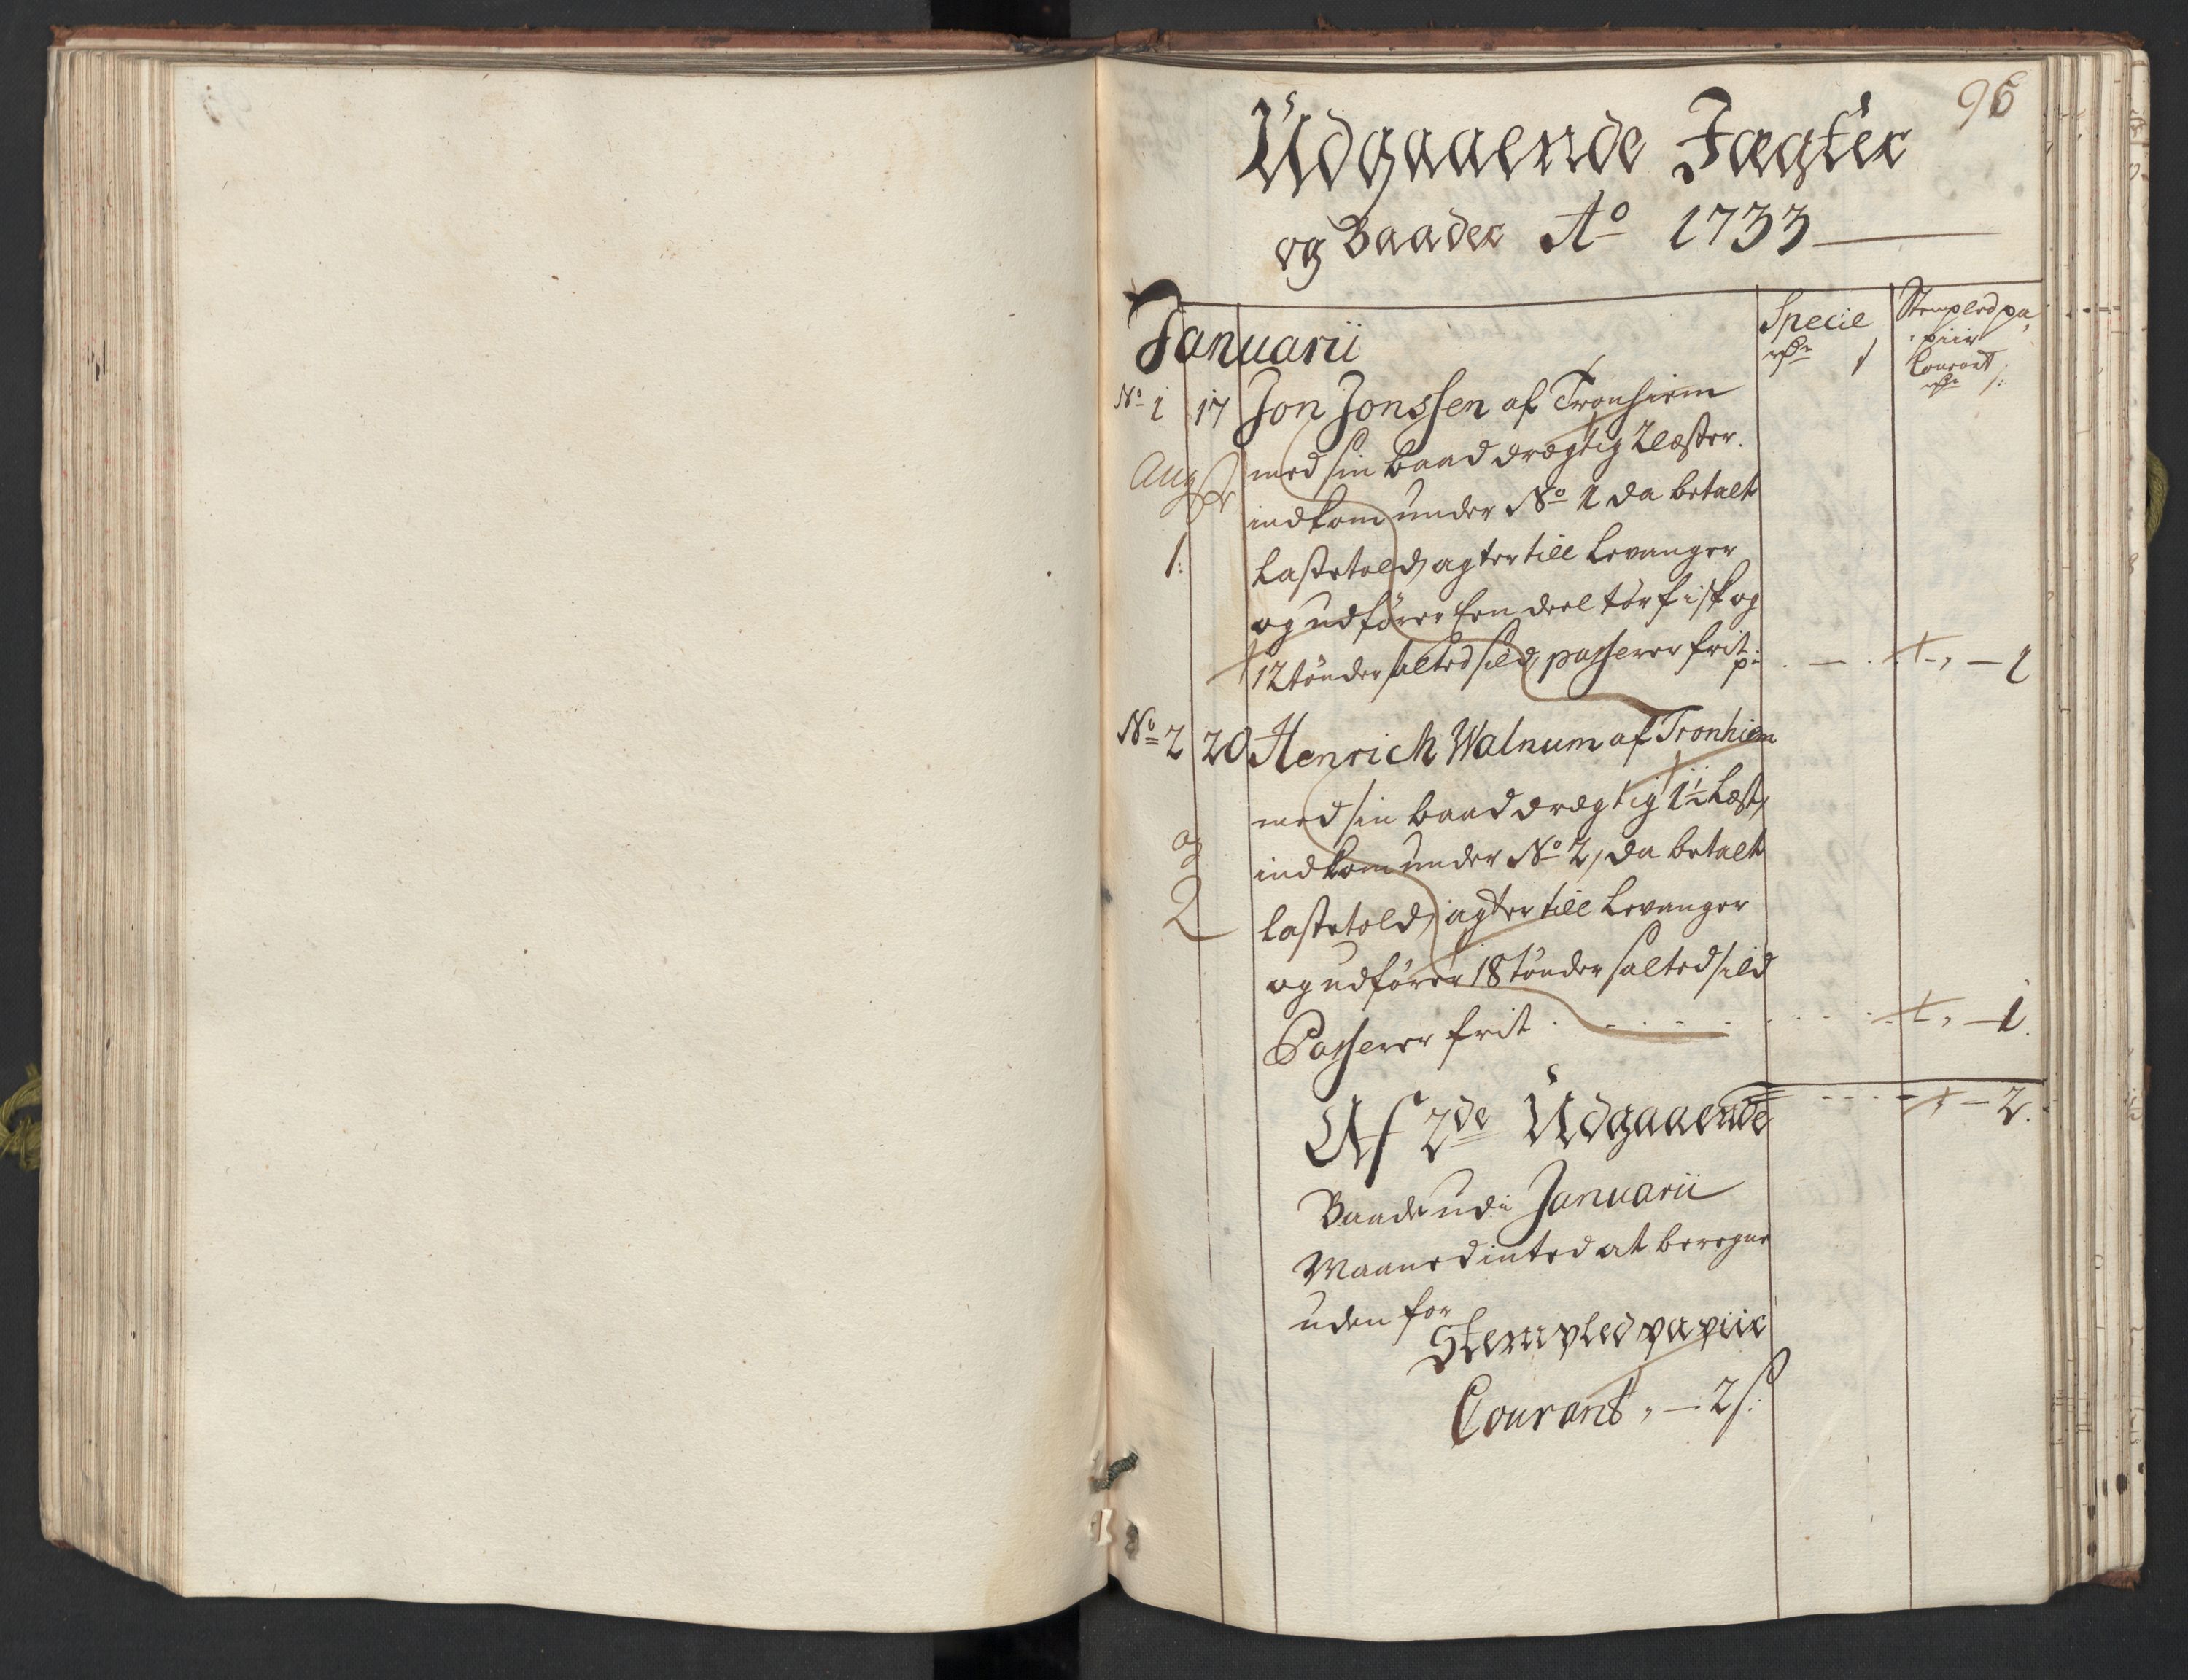 96
Udgaaende Jægter
og Baader Ao 1733
Januarii
Specie
Stempled pa,
piir
Courant
No 1 17 Jon Jonssen af Tronhiem
med sin baad drægtig 2 læster.
indkom under No 1 da betalt
1: Lastetold, agter till Levanger
og udfører Een deel tör fisk og
12 tönder salted sild, passerer frit - 1
No 2 20 Henrich Walnum af Tronhiem
med sin baad drægtig 1½ Læst,
og
indkom under No 2, da betalt
2 Lastetold, agter till Levanger
og udfører 18 tönder salted sild
Passerer frit - 1
Af 2de Udgaaende - 2.
Baade udi Januarii
Maaned inted at beregne
uden for
Stempled papiir
Courant, - 2 s: